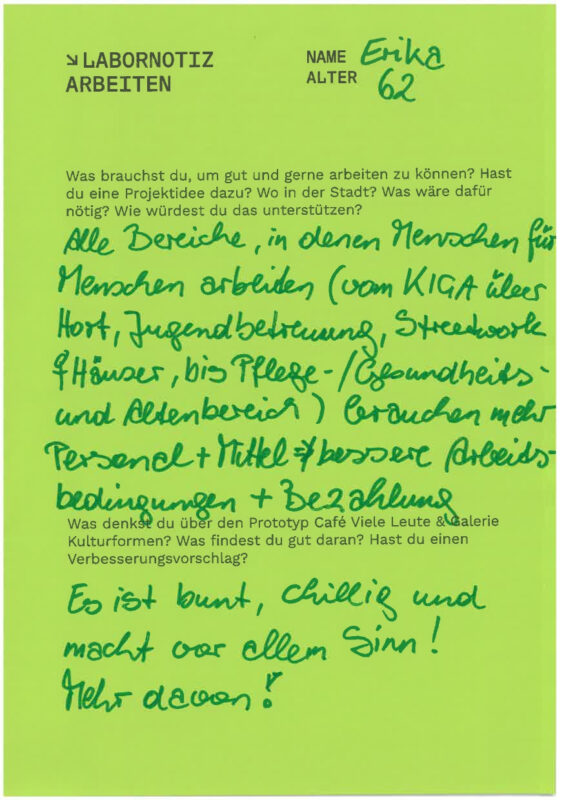 ↘LABORNOTIZ
ARBEITEN
NAME Erika
ALTER 62
Was brauchst du, um gut und gerne arbeiten zu können? Hast
du eine Projektidee dazu? Wo in der Stadt? Was wäre dafür
nötig? Wie würdest du das unterstützen?
Alle Bereiche, in denen Menschen für
Menschen arbeiten (vom KIGA über
Hort, Jugendbetreuung, Streetwork
Häuser, bis Pflege-/Gesundheits-
und Altenbereich) brauchen mehr
Personal + Mittel ⇒ bessere Arbeits-
bedingungen + Bezahlung
Was denkst du über den Prototyp Café Viele Leute & Galerie
Kulturformen? Was findest du gut daran? Hast du einen
Verbesserungsvorschlag?
Es ist bunt, chillig und
macht vor allem Sinn!
Mehr davon!